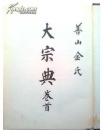 善山金氏
大宗典
卷首